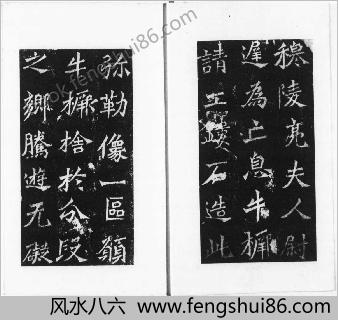 穆陵亮夫人尉
遲為亡息牛橛
請工鏤石造此
弥勒像一區願
牛橛捨於分段
之鄉騰遊无礙
fok.fengshui86.com
fengshui86.com
风水八六 www.fengshui86.com